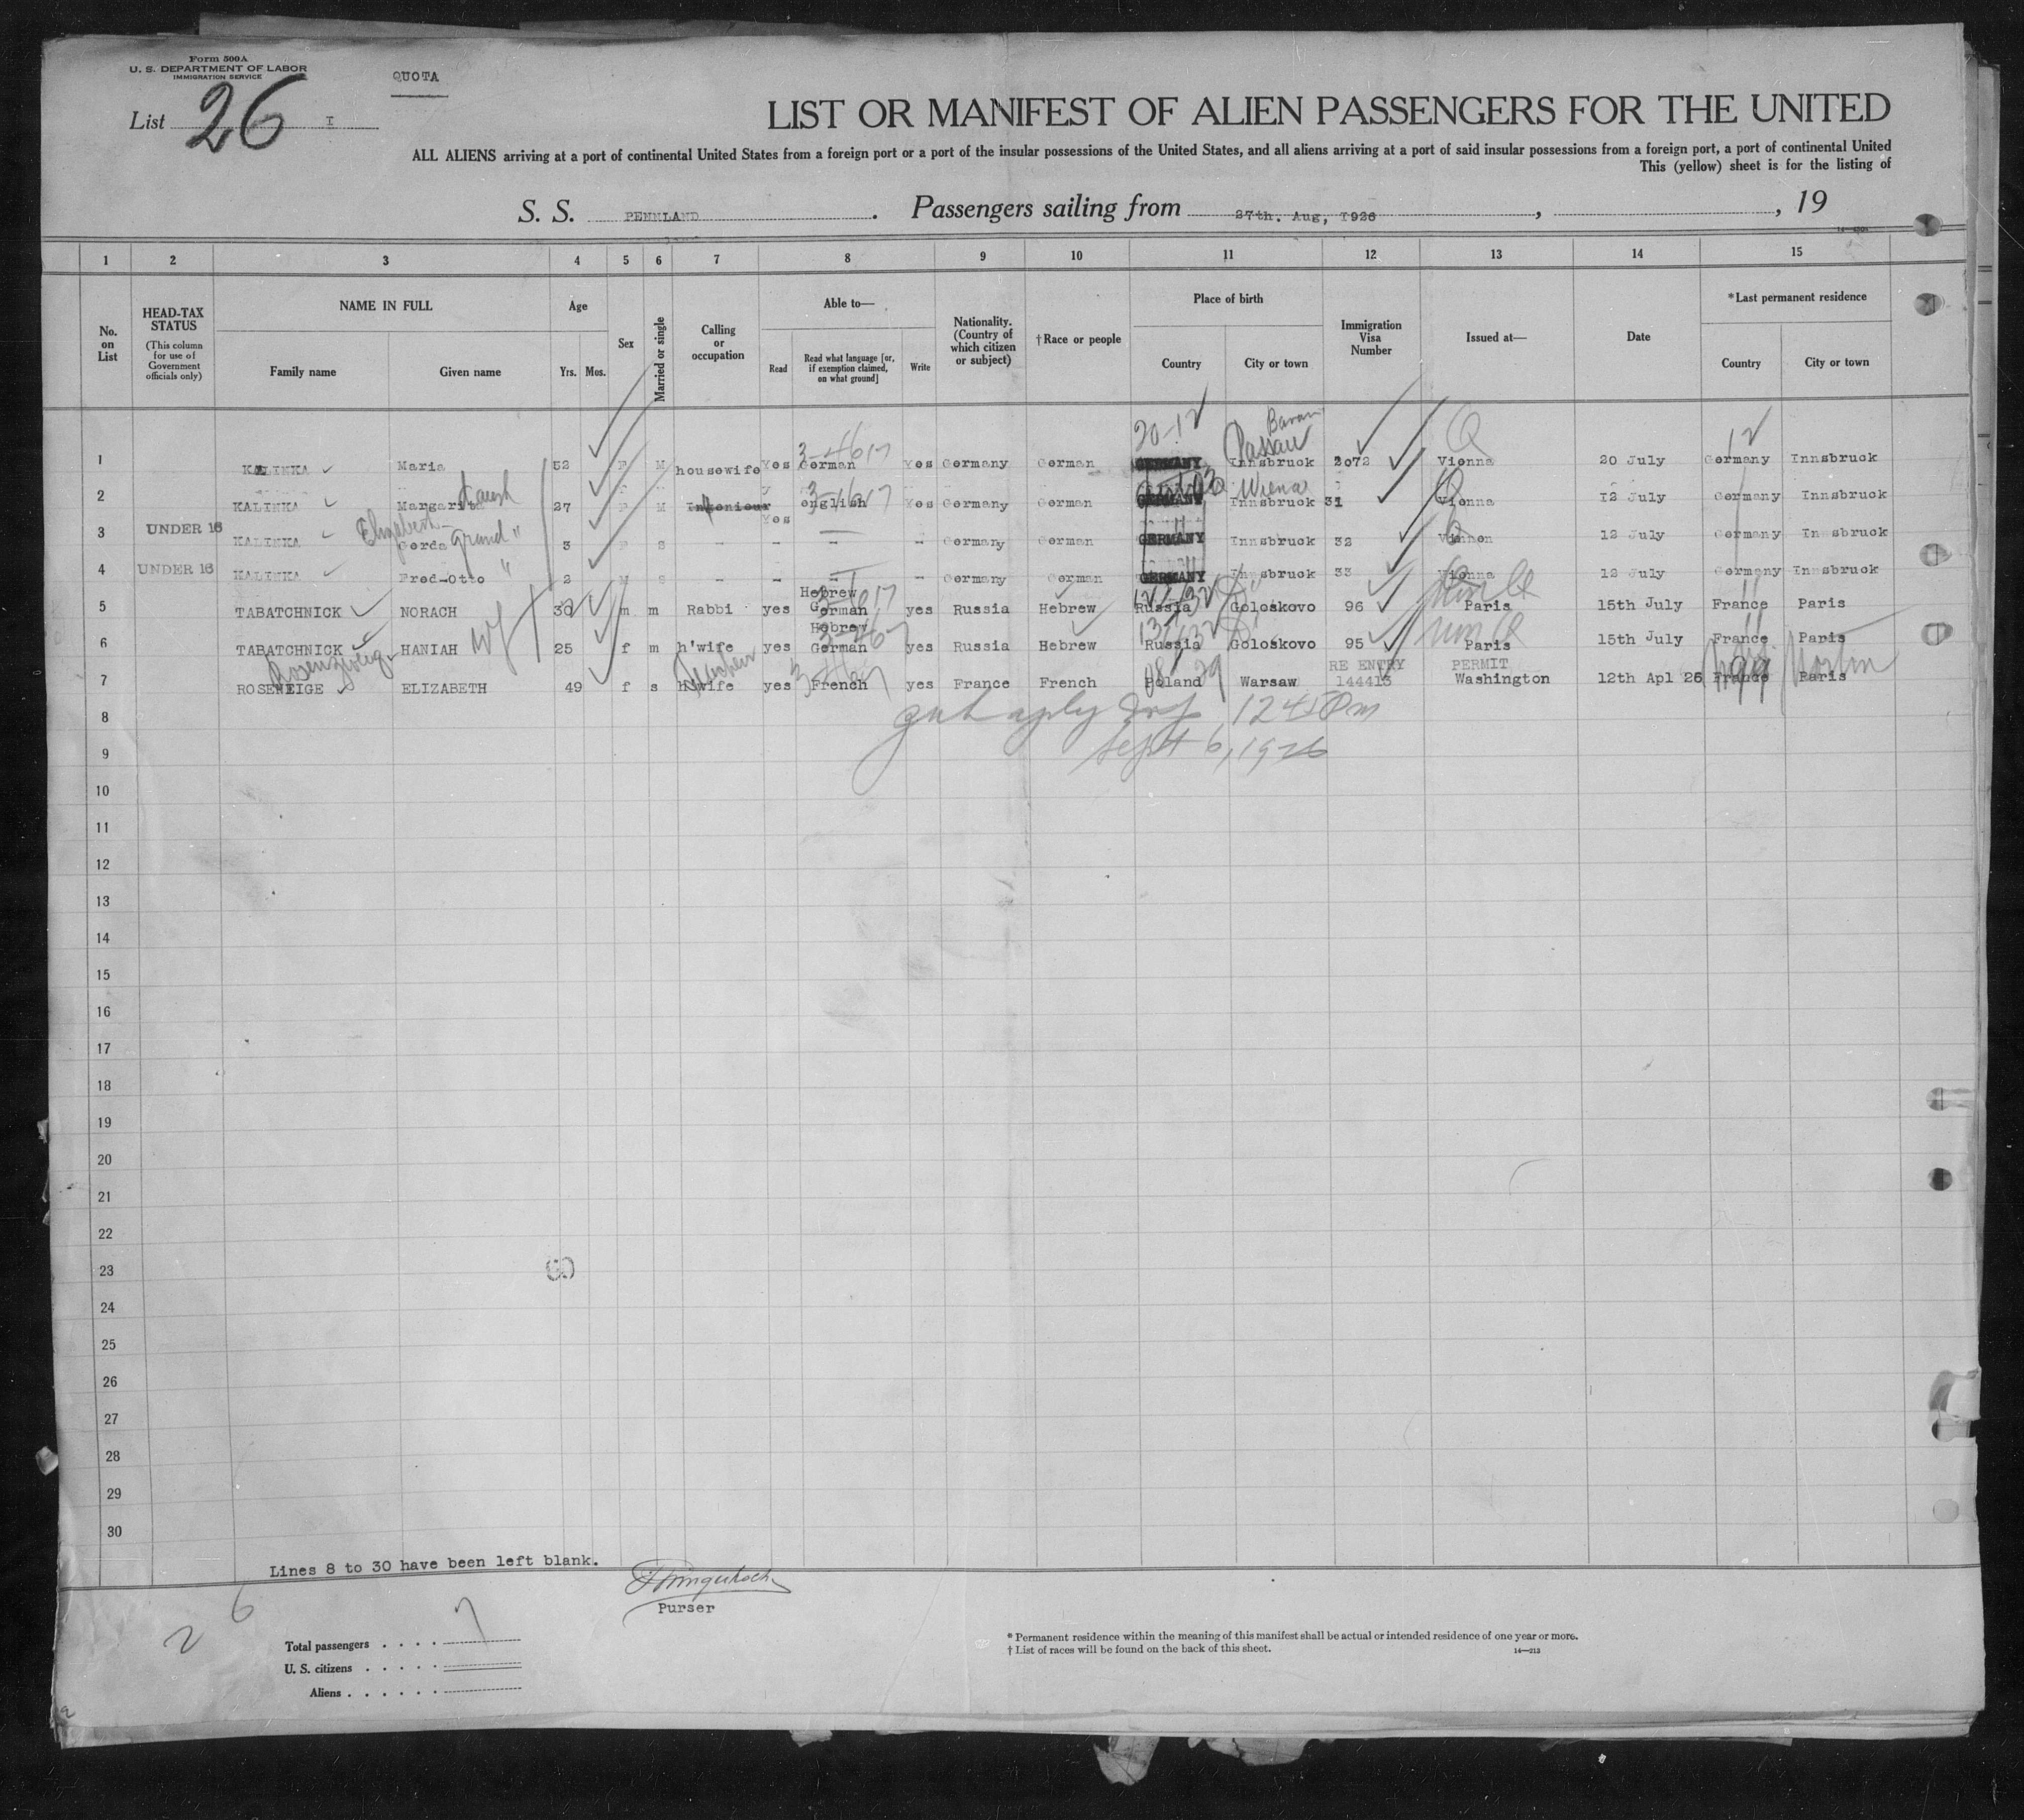 Form 500A
U. S. DEPARTMENT OF LABOR
IMMIGRATION SERVICE
QUOTA
List 26 I
LIST OR MANIFEST OF ALIEN PASSENGERS FOR THE UNITED
ALL ALIENS arriving at a port of continental United States from a foreign port or a port of the insular possessions of the United States, and all aliens arriving at a port of said insular possessions from a foreign port, a port of continental United
This (yellow) sheet is for the listing of
S. S. PENNLAND . Passengers sailing from 27th. Aug, 1926 , , 19
1 2 3 4 5 6 7 8 9 10 11 12 13 14 15
No. on List
HEAD-TAX STATUS
(This column for use of Government officials only)
NAME IN FULL
Family name Given name
Age
Yrs. Mos.
Sex
Married or single
Calling or occupation
Able to—
Read
Read what language [or, if exemption claimed, on what ground]
Write
Nationality. (Country of which citizen or subject)
†Race or people
Place of birth
Country City or town
Immigration Visa Number
Issued at—
Date
*Last permanent residence
Country City or town
20-12 Passau 12
1 KALINKA Maria 52 F M housewife Yes German Yes Germany German GERMANY Innsbruck 2072 Vienna 20 July Germany Innsbruck
Wiena
2 KALINKA Margarita 27 F M Ingenieur Yes english Yes Germany German GERMANY Innsbruck 31 Vienna 12 July Germany Innsbruck
Elizabeth Grand "
3 UNDER 16 KALINKA Gerda 3 F S - - - - Germany German GERMANY Innsbruck 32 12 July Germany Innsbruck
4 UNDER 16 KALINKA Fred-Otto " 2 M S - - - - Germany German GERMANY Innsbruck 33 Vienna 12 July Germany Innsbruck
Hebrew
5 TABATCHNICK NORACH 30 m m Rabbi yes German yes Russia Hebrew Russia Goloskovo 96 Paris 15th July France Paris
Hebrew
6 TABATCHNICK HANIAH wf 25 f m h'wife yes German yes Russia Hebrew Russia Goloskovo 95 Paris 15th July France Paris
Rosenzweig Teacher RE ENTRY PERMIT
7 ROSENEIGE ELIZABETH 49 f s h'wife yes French yes France French Poland Warsaw 144413 Washington 12th Apl 26 France Paris
8 1245 Pm
9 Sept 6, 1926
10
11
12
13
14
15
16
17
18
19
20
21
22
23
24
25
26
27
28
29
30
Lines 8 to 30 have been left blank.
Purser
2 6
Total passengers . . . . 7
U. S. citizens . . . . .
Aliens . . . . . .
* Permanent residence within the meaning of this manifest shall be actual or intended residence of one year or more.
† List of races will be found on the back of this sheet.
14—213